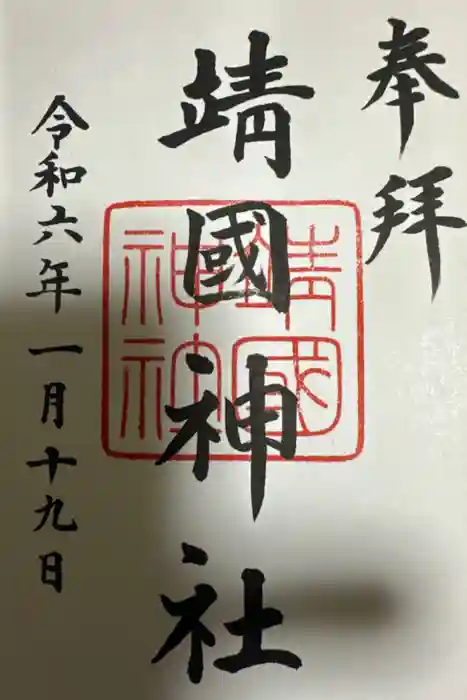 奉拝
靖國神社
靖國
神社
令和六年一月十九日